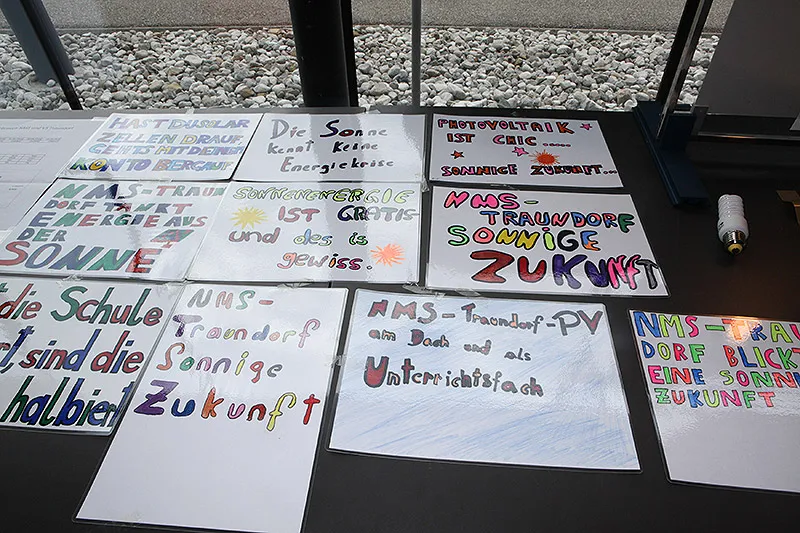 HAST DU SOLAR
ZELLEN DRAUF,
GEHTS MIT DEINEM
KONTO BERGAUF
Die Sonne
kennt keine
Energiekrise
PHOTOVOLTAIK
IST CHIC.....
SONNIGE ZUKUNFT...
NMS-TRAUN
DORF TANKT
ENERGIE AUS
DER
SONNE
SONNENENERGIE
IST GRATIS
und des is
gewiss.
NMS-
TRAUNDORF
SONNIGE
ZUKUNFT
die Schule
sind die
halbiert
NMS-
Traundorf
Sonnige
Zukunft
NMS-Traundorf-PV
am Dach und als
Unterrichtsfach
NMS-TRAU
DORF BLICKT
EINE SONN
ZUKUNFT